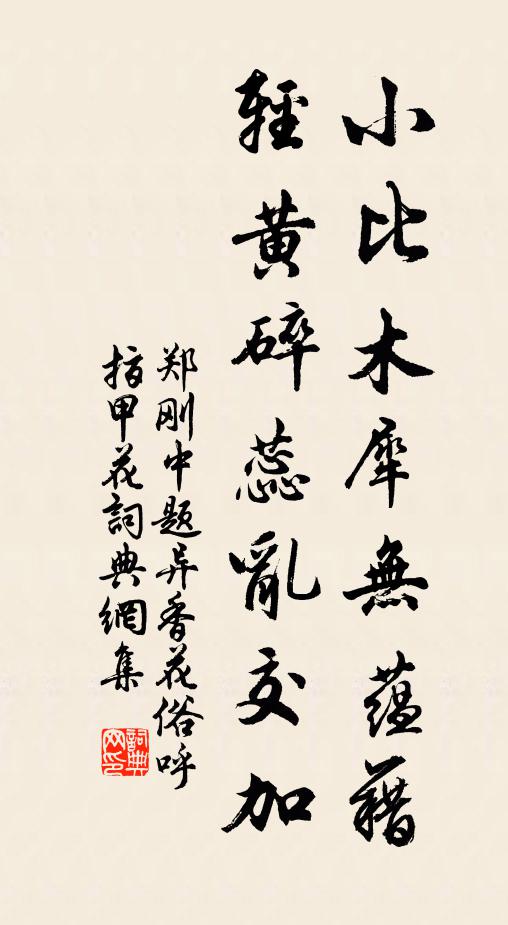 小比木犀無蕴藉
輕黄碎蕊亂交加
郑刚中题异香花俗呼
指甲花詞典網集
詞典网印